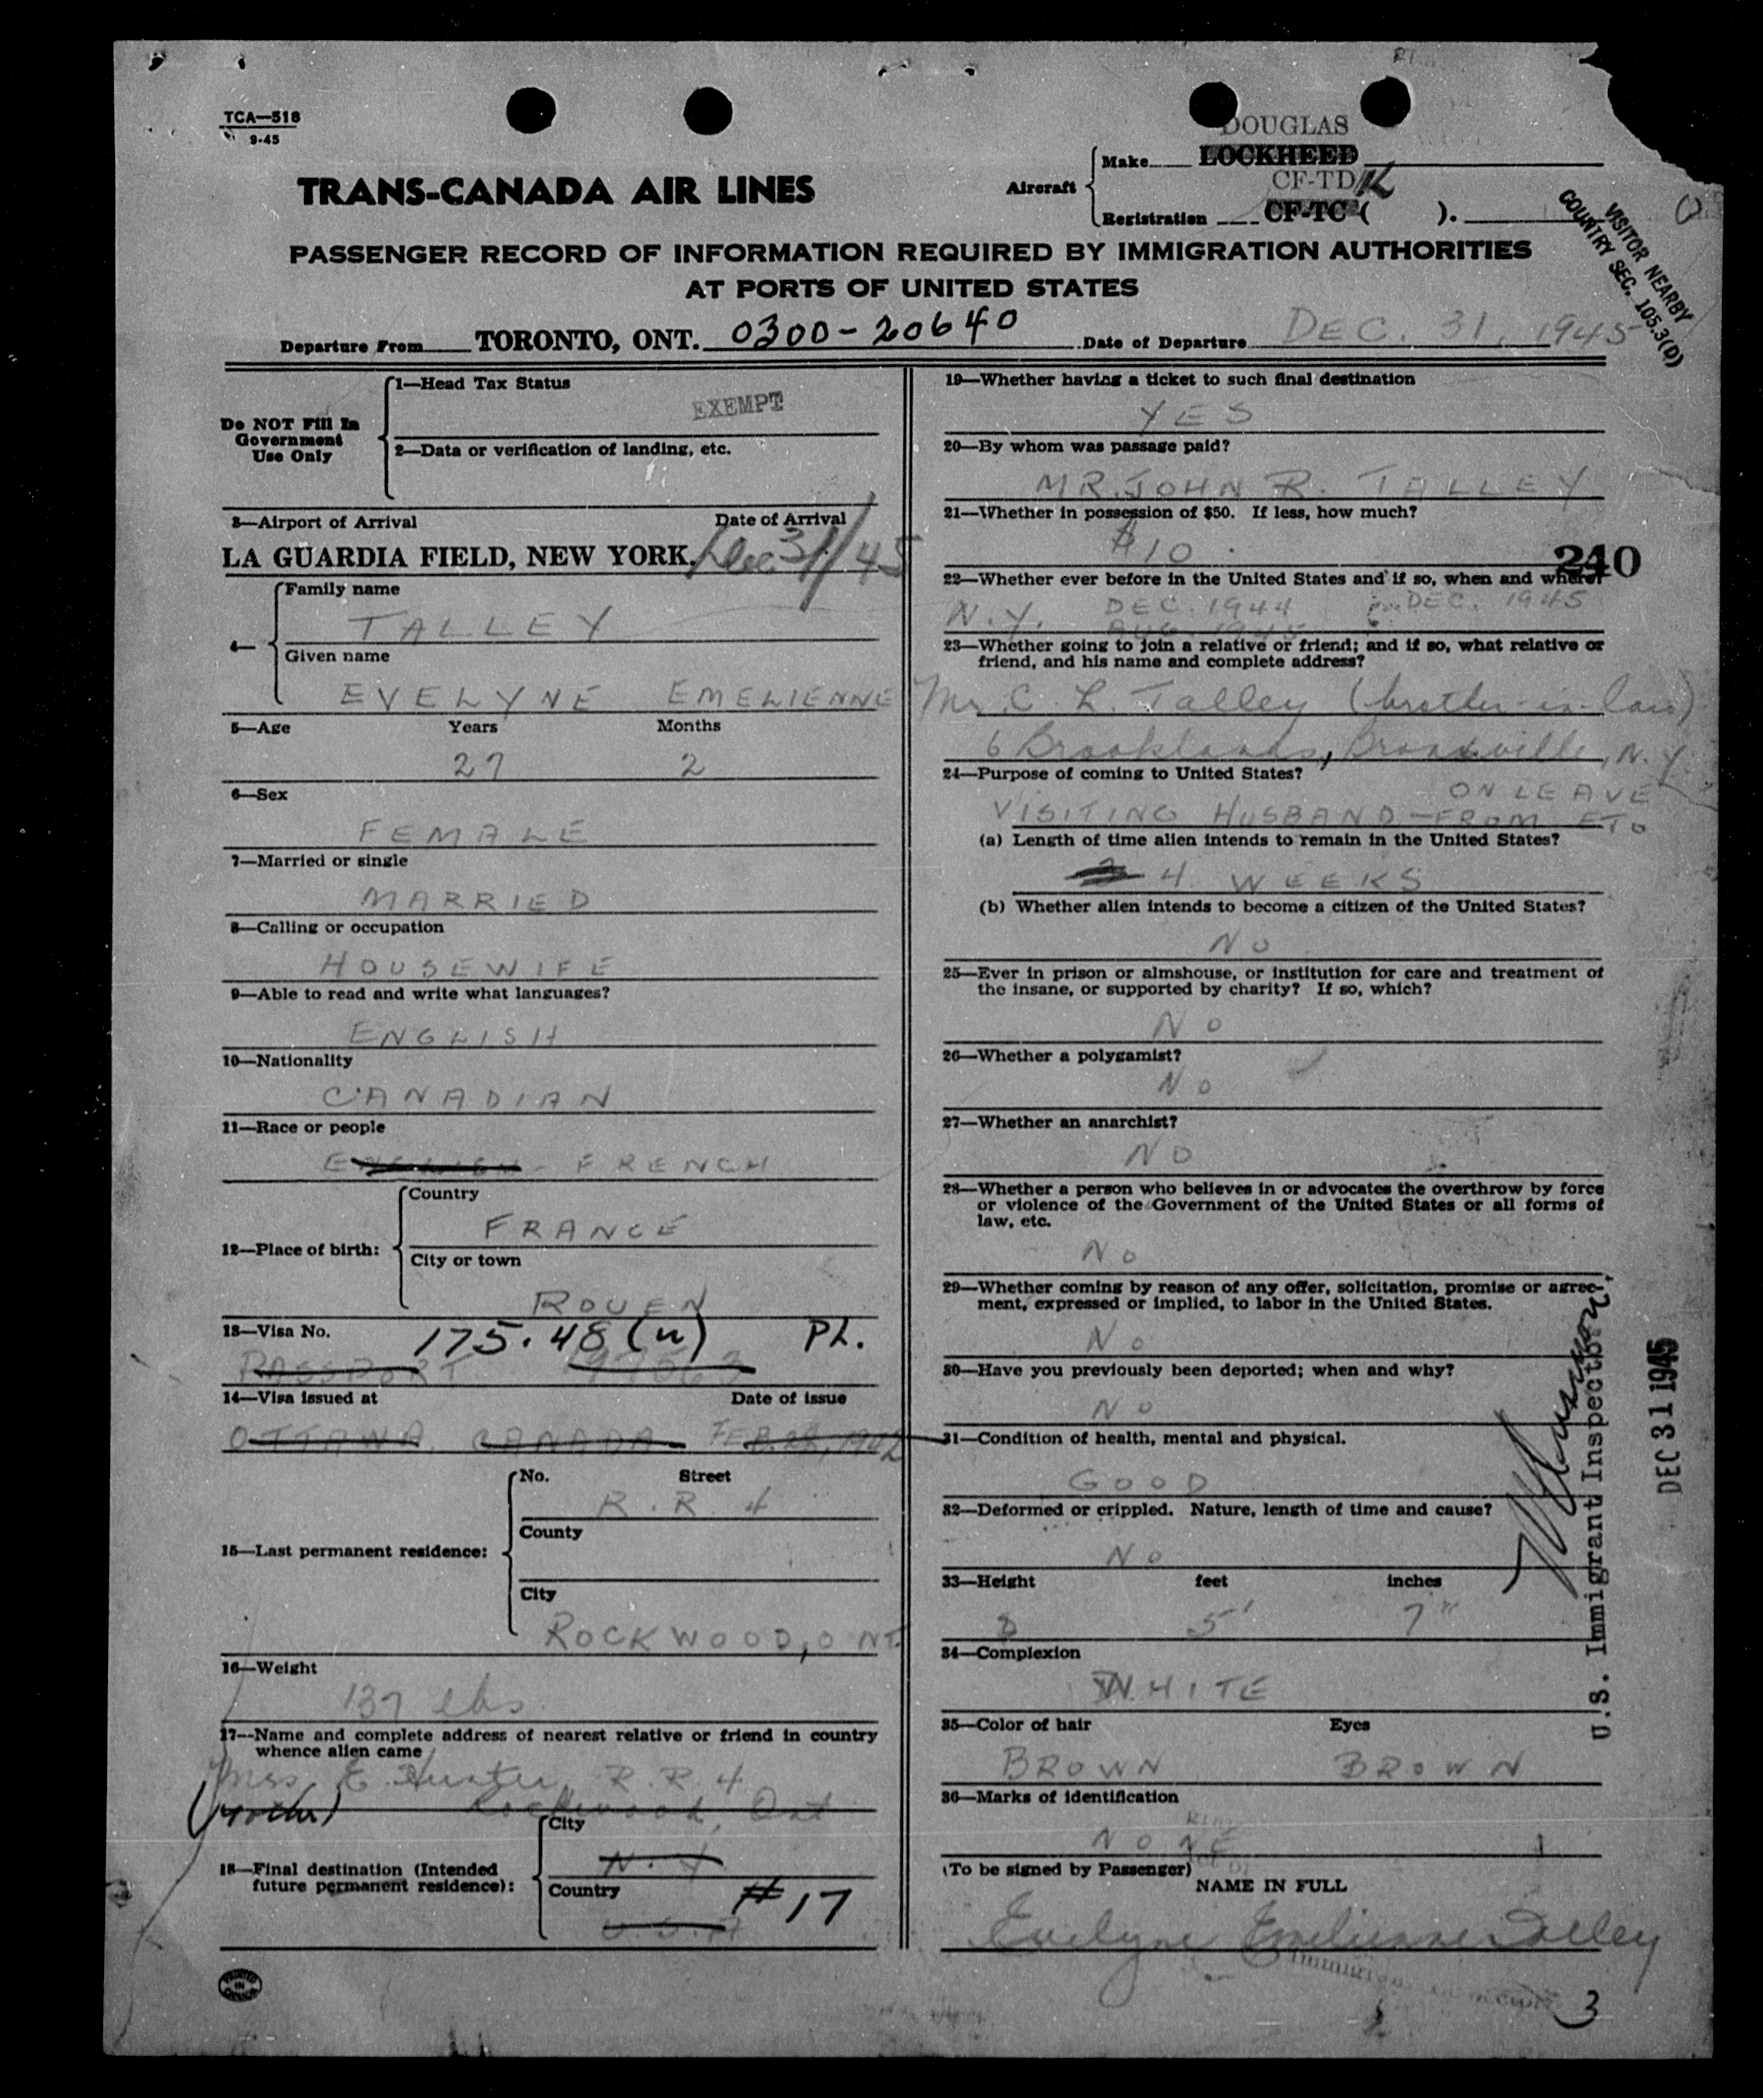 TCA—518
9-45
DOUGLAS
Make LOCKHEED
TRANS-CANADA AIR LINES
Aircraft
CF-TDK
Registration CF-TC ( ).
VISITOR NEARBY
COUNTRY SEC. 105.3(D)
PASSENGER RECORD OF INFORMATION REQUIRED BY IMMIGRATION AUTHORITIES
AT PORTS OF UNITED STATES
Departure From TORONTO, ONT. 0300-20640 Date of Departure DEC. 31, 1945
Do NOT Fill In
Government
Use Only
1—Head Tax Status
EXEMPT
2—Data or verification of landing, etc.
3—Airport of Arrival Date of Arrival
LA GUARDIA FIELD, NEW YORK. Dec 31/45
4—
Family name
TALLEY
Given name
EVELYNE EMELIENNE
5—Age Years Months
27 2
6—Sex
FEMALE
7—Married or single
MARRIED
8—Calling or occupation
HOUSEWIFE
9—Able to read and write what languages?
ENGLISH
10—Nationality
CANADIAN
11—Race or people
ENGLISH - FRENCH
12—Place of birth:
Country
FRANCE
City or town
ROUEN
13—Visa No. 175.48 (n) PL.
PASSPORT
14—Visa issued at Date of issue
OTTAWA, CANADA FEB. 28, 1942
15—Last permanent residence:
No. Street
R. R. 4
County
City
ROCKWOOD, ONT.
16—Weight
137 lbs
17—Name and complete address of nearest relative or friend in country
whence alien came
Mrs. E. Hunter, R. R. 4
(Mother) Rockwood, Ont
18—Final destination (Intended
future permanent residence):
City
N. Y.
Country #17
U.S.A
19—Whether having a ticket to such final destination
YES
20—By whom was passage paid?
MR. JOHN R. TALLEY
21—Whether in possession of $50. If less, how much?
$10
240
22—Whether ever before in the United States and if so, when and where?
N.Y. DEC. 1944 DEC. 1945
AUG. 1945
23—Whether going to join a relative or friend; and if so, what relative or
friend, and his name and complete address?
Mr. C. L. Talley (brother-in-law)
6 Brooklands, Bronxville, N.Y.
24—Purpose of coming to United States?
ON LEAVE
VISITING HUSBAND - FROM ETO
(a) Length of time alien intends to remain in the United States?
4 WEEKS
(b) Whether alien intends to become a citizen of the United States?
NO
25—Ever in prison or almshouse, or institution for care and treatment of
the insane, or supported by charity? If so, which?
NO
26—Whether a polygamist?
NO
27—Whether an anarchist?
NO
28—Whether a person who believes in or advocates the overthrow by force
or violence of the Government of the United States or all forms of
law, etc.
NO
29—Whether coming by reason of any offer, solicitation, promise or agree-
ment, expressed or implied, to labor in the United States.
NO
30—Have you previously been deported; when and why?
NO
31—Condition of health, mental and physical.
GOOD
32—Deformed or crippled. Nature, length of time and cause?
NO
33—Height feet inches
5' 7"
34—Complexion
WHITE
35—Color of hair Eyes
BROWN BROWN
36—Marks of identification
NONE
(To be signed by Passenger)
NAME IN FULL
Evelyne Emelienne Talley
U.S. Immigrant Inspector.
DEC 31 1945
PRINTED
IN
CANADA
3